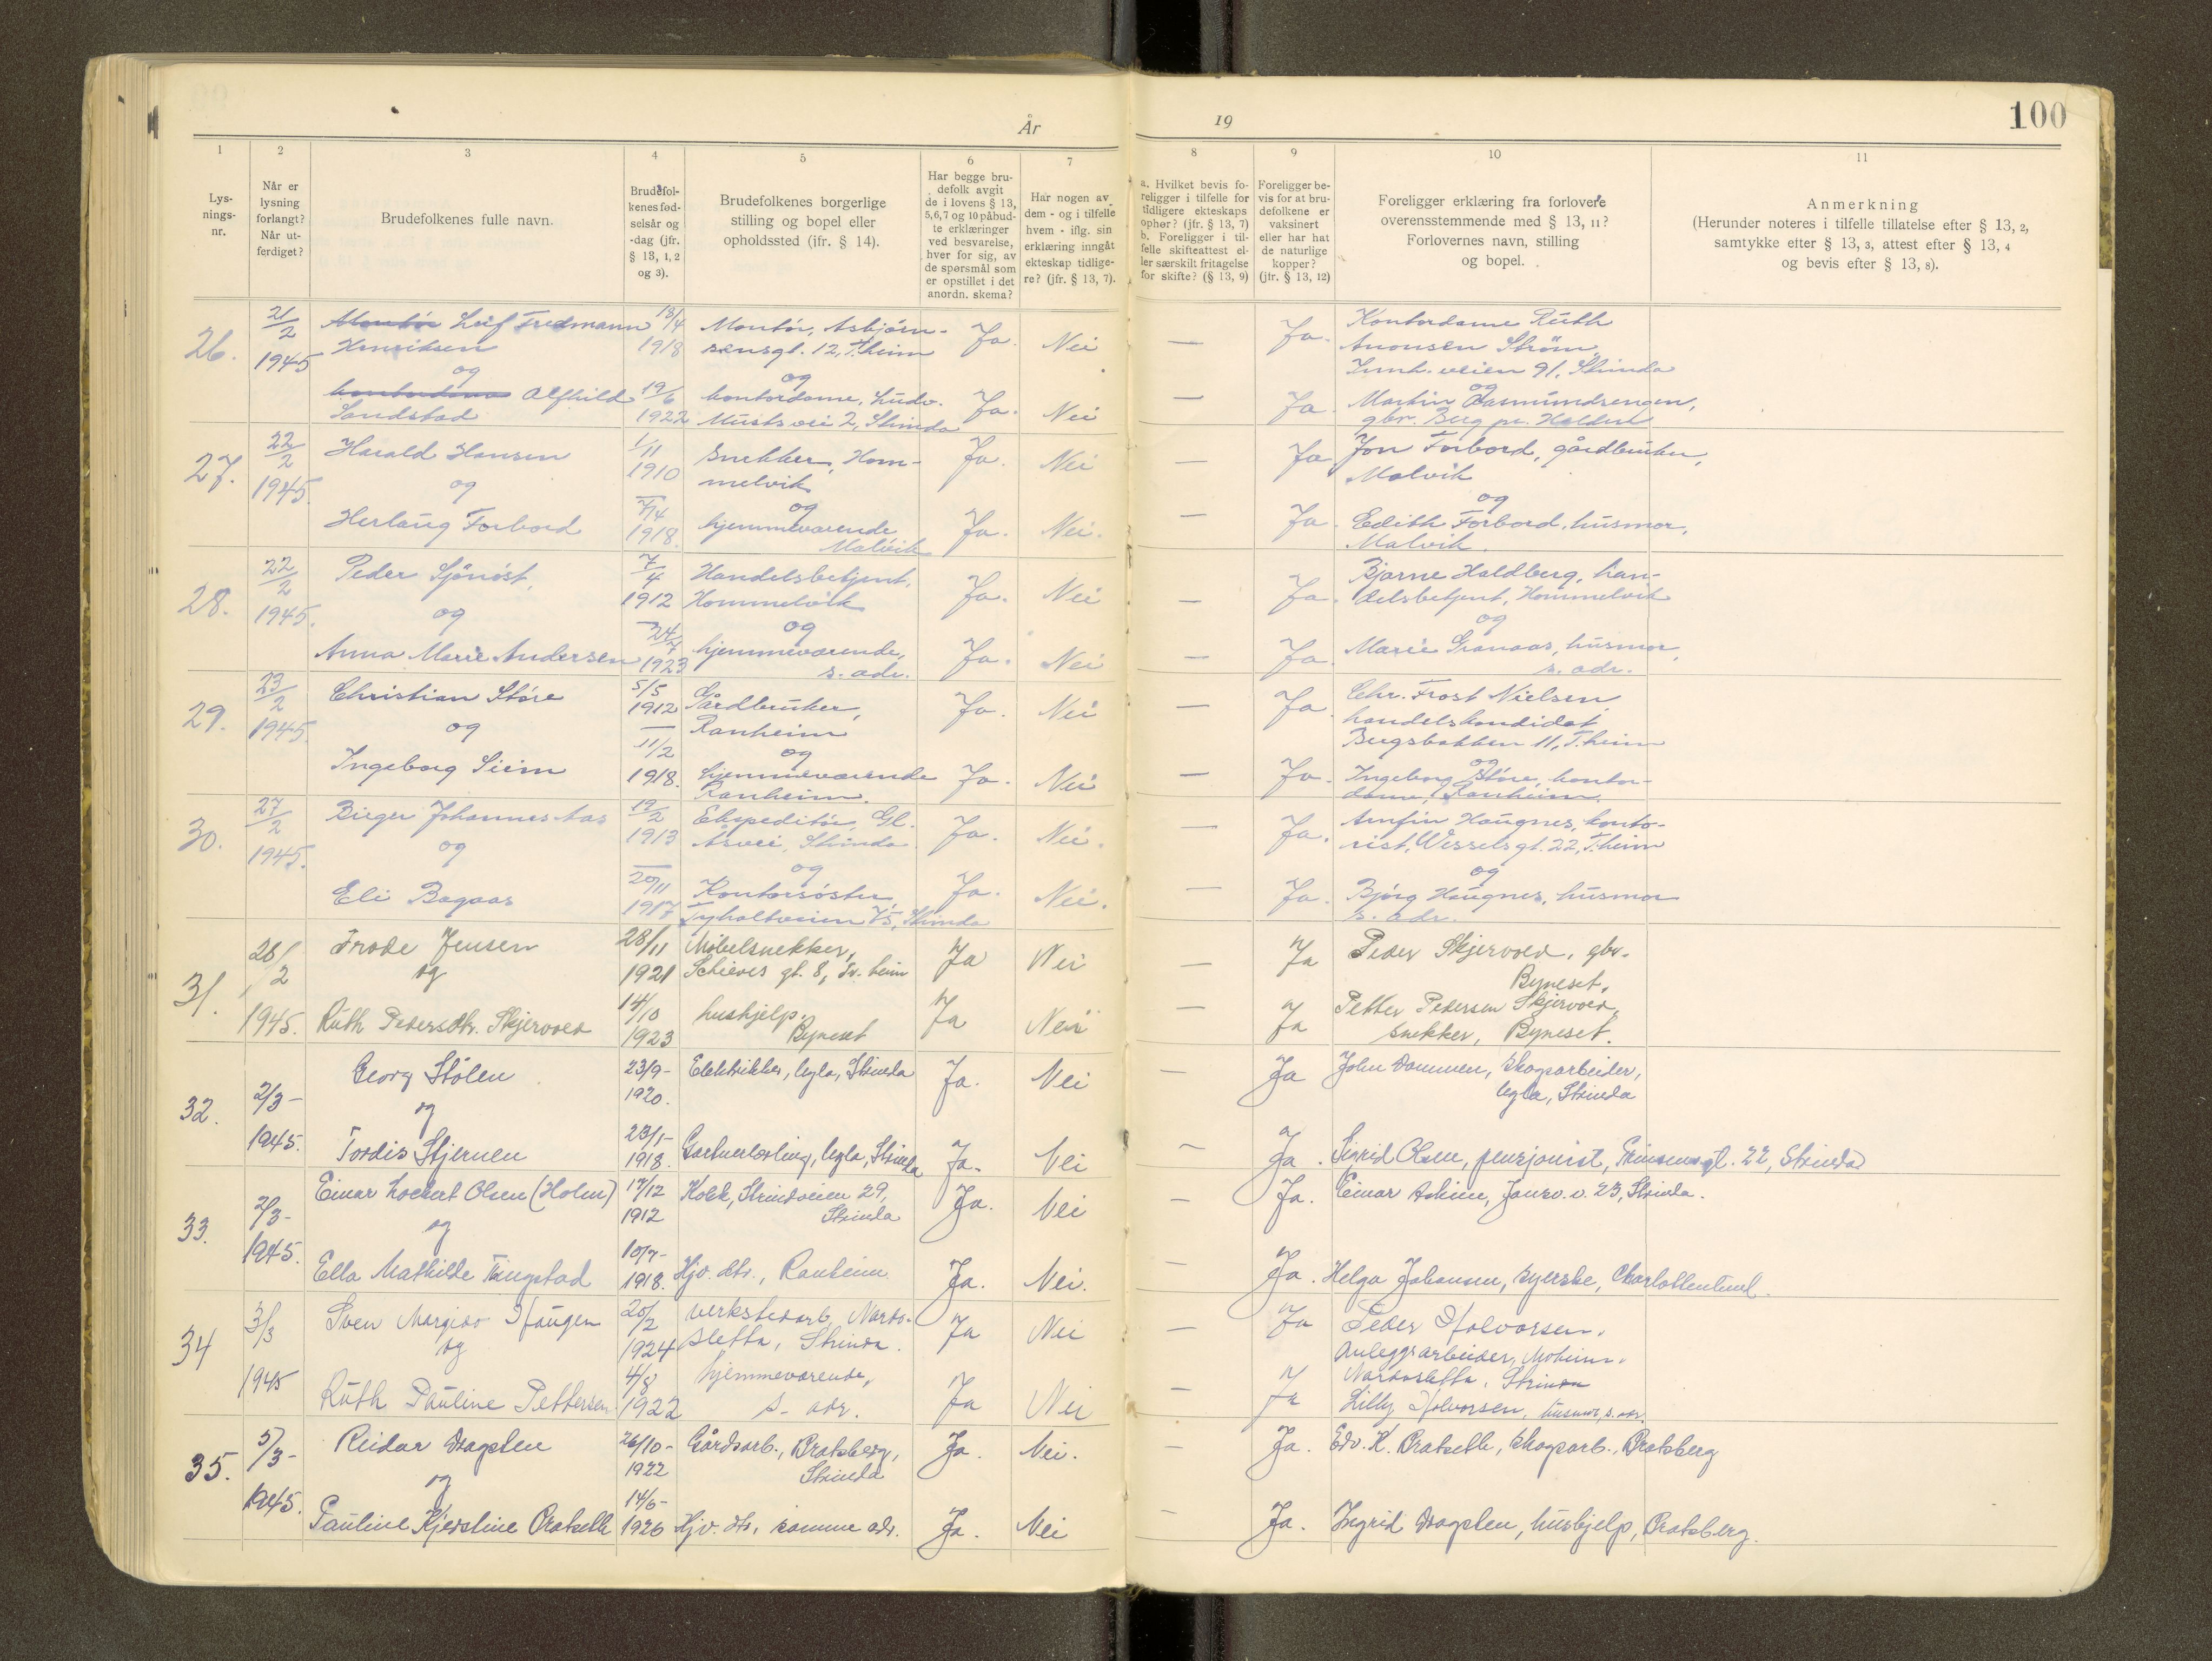 100
År 19
1 2 3 4 5 6 7 8 9 10 11
Lys-
nings-
nr.
Når er
lysning
forlangt?
Når ut-
ferdiget?
Brudefolkenes fulle navn.
Brudefol-
kenes fød-
selsår og
-dag (jfr.
§ 13, 1, 2
og 3).
Brudefolkenes borgerlige
stilling og bopel eller
opholdssted (jfr. § 14).
Har begge bru-
defolk avgit
de i lovens § 13,
5,6,7 og 10 påbud-
te erklæringer
ved besvarelse,
hver for sig, av
de spørsmål som
er opstillet i det
anordn. skema?
Har nogen av
dem - og i tilfelle
hvem - iflg. sin
erklæring inngåt
ekteskap tidlige-
re? (jfr. § 13, 7).
a. Hvilket bevis fo-
religger i tilfelle for
tidligere ekteskaps
ophør? (jfr. § 13, 7)
b. Foreligger i til-
felle skifteattest el-
ler særskilt fritagelse
for skifte? (§ 13, 9)
Foreligger be-
vis for at bru-
defolkene er
vaksinert
eller har hat
de naturlige
kopper?
(jfr. § 13, 12)
Foreligger erklæring fra forlovere
overensstemmende med § 13, 11?
Forlovernes navn, stilling
og bopel.
Anmerkning
(Herunder noteres i tilfelle tillatelse efter § 13, 2,
samtykke efter § 13, 3, attest efter § 13, 4
og bevis efter § 13, 8).
26. 21/2 1945
Montør Leif Tredmann 18/4 Montør, Asbjørn- Ja. Nei — Ja. Kontordame Ruth
Henriksen 1918 sensgt. 12, T.heim Amonsen Strøm,
og og Innh. veien 91, Strinda
kontordame Alfhild 19/6 kontordame, Ludv. Ja. Nei — Ja. og
Sandstad 1922 Musts vei 2, Strinda Martin Aasmundsengen,
gbr. Berg pr. Halden
27. 22/2 1945.
Harald Hansen 1/11 1910 Snekker, Hom- Ja. Nei — Ja Jon Forbord, gårdbruker,
melvik Malvik
og og og
Herlaug Forbord 7/4 1918. hjemmeværende Ja. Nei. — Ja. Edith Forbord, husmor,
Malvik Malvik.
28. 22/2 1945.
Peder Sjønøst, 7/4 1912 Handelsbetjent, Ja. Nei — Ja. Bjarne Haldberg, han-
Hommelvik delsbetjent, Hommelvik
og og og
Anna Marie Andersen 24/7 1923 hjemmeværende, Ja. Nei — Ja. Marie Granaas, husmor,
s. adr. s. adr.
29. 23/2 1945.
Christian Støre 5/5 1912 Gårdbruker, Ja. Nei — Ja. Chr. Frost Nielsen
Ranheim handelskandidat
og og Bergsbakken 11, T.heim
Ingeborg Siem 11/2 1918. hjemmeværende Ja. Nei — Ja. og
Ranheim. Ingeborg Støre, kontor-
dame, Ranheim.
30. 27/2 1945.
Birger Johannes Aas 19/2 1913 Ekspeditør, Gl. Ja. Nei. — Ja. Arnfin Haugnes, konto-
Åsvei, Strinda. rist, Wesselsgt. 22, T.heim
og og og
Eli Bagaas 20/11 1917 Kontorsøster, Ja. Nei. — Ja. Bjørg Haugnes, husmor
Tyholtveien 75, Strinda s. adr.
31. 28/2 1945.
Frode Jensen 28/11 1921 Møbelsnekker, Ja Nei — Ja Peder Skjervold, gbr.
og Schives gt. 8, Tr.heim Byneset.
Ruth Pedersdtr. Skjervold 14/10 1923 hushjelp. Ja Nei — Ja Petter Pedersen Skjervold,
Byneset snekker, Byneset.
32. 2/3- 1945.
Georg Stølen 23/9- 1920. Elektriker, Ugla, Strinda Ja. Nei — Ja John Dammen, skogsarbeider,
og Ugla, Strinda
Tordis Stjernen 23/1- 1918. Gartnerlærling, Ugla, Strinda Ja. Nei — Ja. Sigrid Olsen, pensjonist, gt. 22, Strinda
33. 2/3- 1945.
Einar Lockert Olsen (Holm) 17/12 1912 Kokk, Strindveien 29, Ja. Nei — Ja. Einar Askim, Jonsv.v. 23, Strinda.
og Strinda
Ella Mathilde Tingstad 10/7- 1918. Hjv. dtr., Ranheim. Ja. Nei. — Ja. Helga Johansen, syerske, Charlottenlund.
34 3/3 1945
Sven Margido Haugen 20/2 1924 verkstedarb. Nardo- Ja Nei — Ja Peder Halvorsen,
og sletta, Strinda. Anleggsarbeider, Moheim.
Nardosletta, Strinda
Ruth Pauline Pettersen 4/8 1922 hjemmeværende, Ja Nei — Ja Lilly Halvorsen, husmor, s. adr.
s. adr.
35. 5/3- 1945.
Reidar Dragsten 26/10- 1922 Gårdsarb., Bratsberg, Ja. Nei. — Ja. Edv. K. Bratseth, skogsarb., Bratsberg
og Strinda
Pauline Kjerstine Bratseth 14/6- 1926 Hjv. dtr, samme adr. Ja. Nei — Ja. Ingrid Dragsten, hushjelp, Bratsberg.